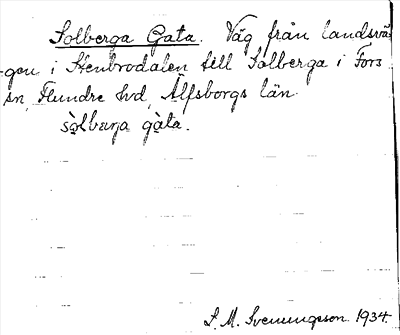 Solberga Gata. Väg från landsvä
-gen i Stenbrodalen till Solberga i Fors
sn, Flundre hd, Älfsborgs län.
sòlbærja gàta.
S. M. Svenungsson 1934.